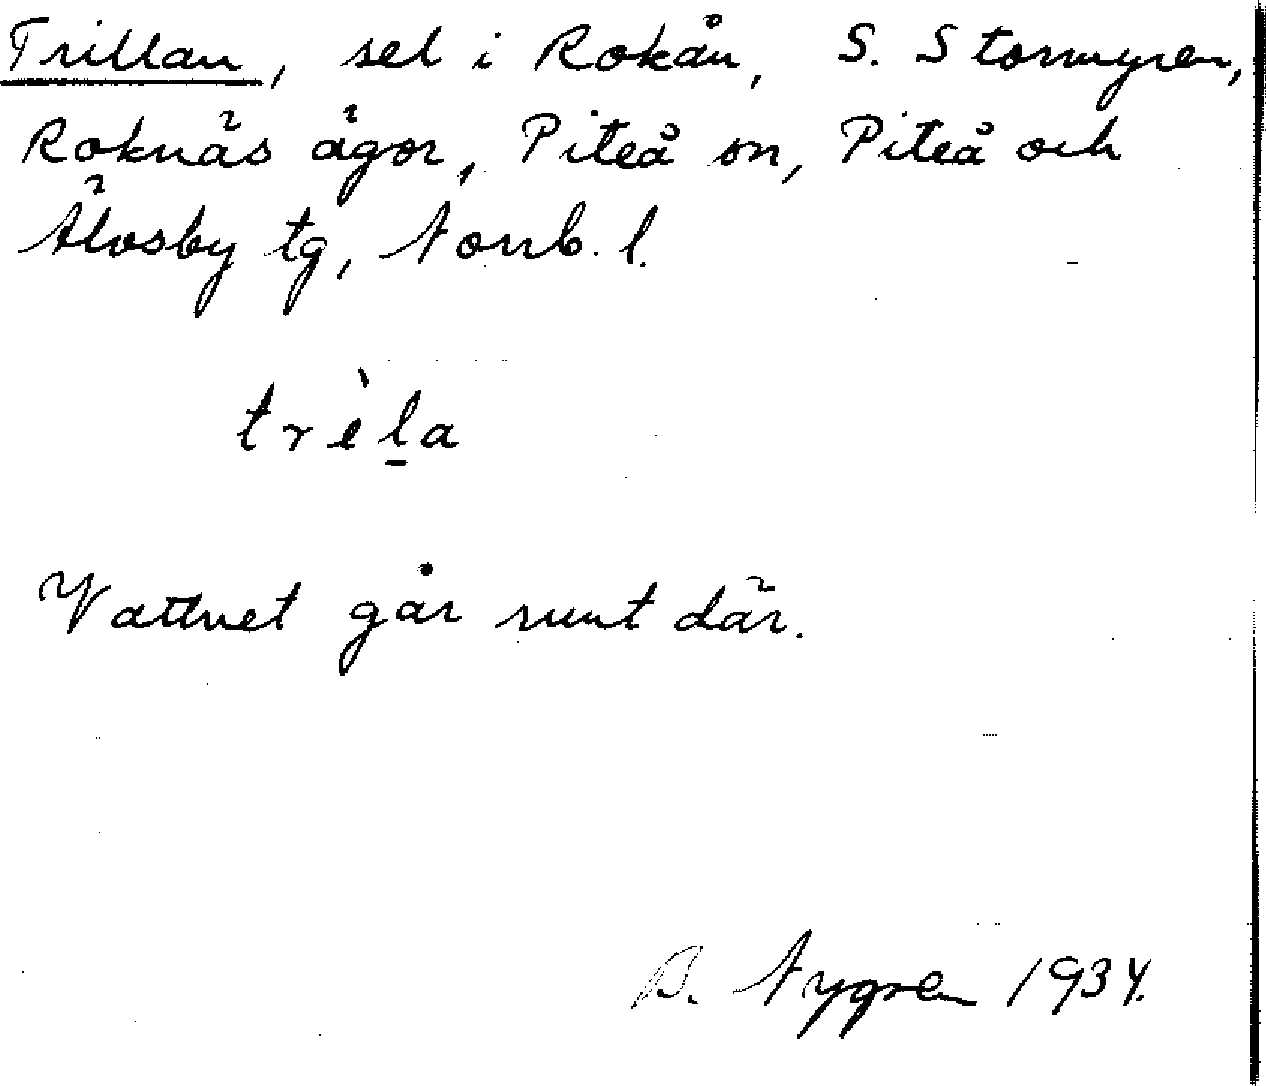 Trillan, sel i Rokån, S. Stormyren,
Roknäs ägor, Piteå sn, Piteå och
Älvsby tg, Norrb. l.
trèl̠a
Vattnet går runt där.
B. Nygren 1934.